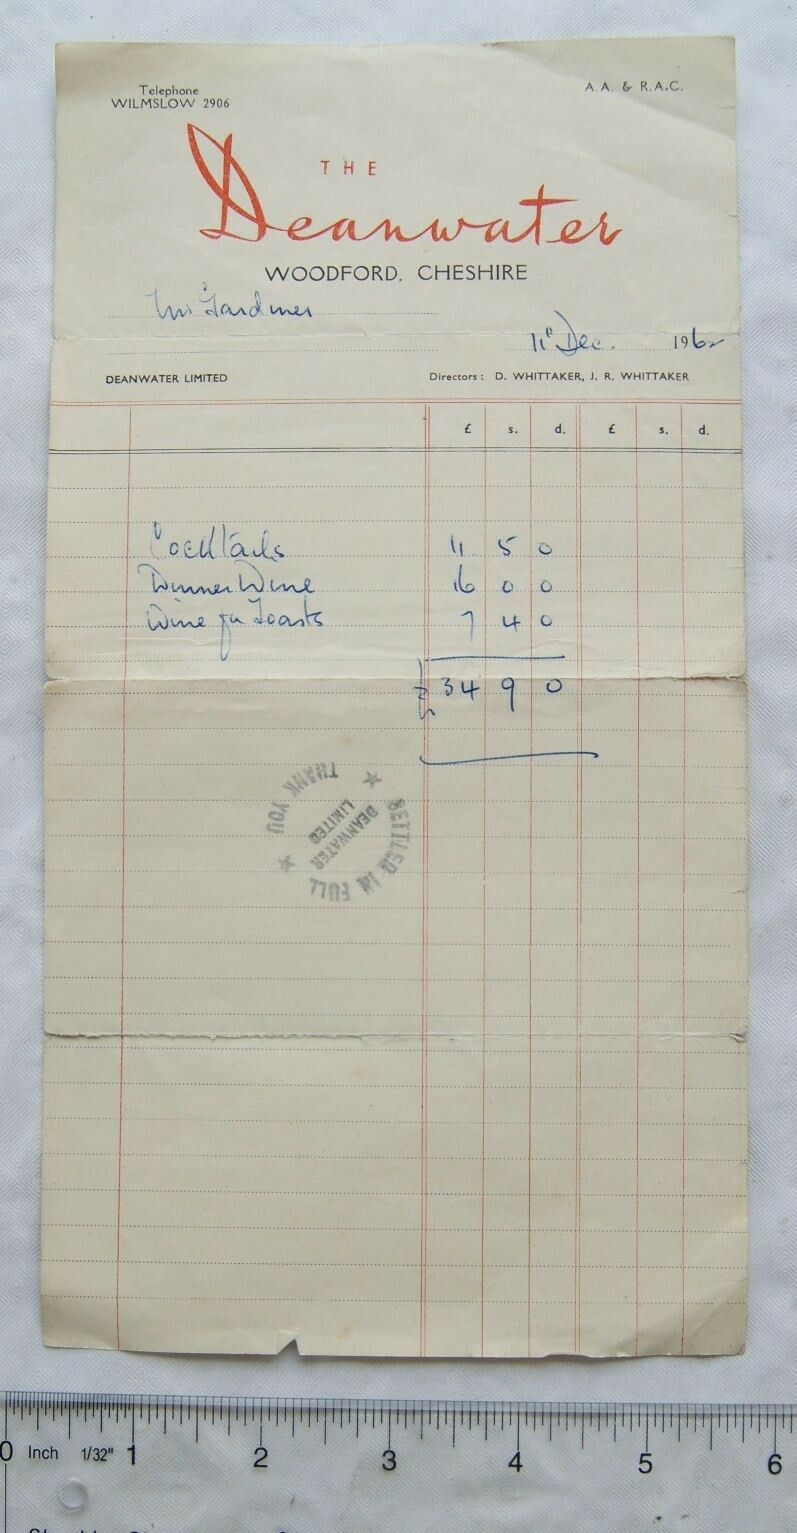 Telephone
WILMSLOW 2906
A.A. & R.A.C.
THE
Deanwater
WOODFORD, CHESHIRE
Gardiner
11" Dec. 1962
DEANWATER LIMITED
Directors: D. WHITTAKER, J. R. WHITTAKER
£ s. d. £ s. d.
Cocktails 11 5 0
Dinner Wine 16 0 0
Wine for Toasts 7 4 0
£ 34 9 0
SETTLED IN FULL
THANK YOU
DEANWATER
LIMITED
0 Inch 1/32" 1 2 3 4 5 6